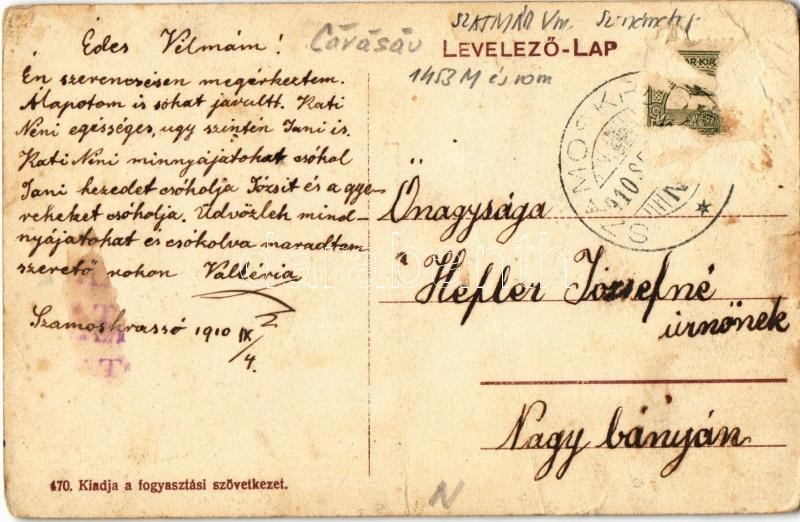 Édes Vilmám!
Én szerencsésen megérkeztem.
Álapotom is sókat javultt. Kati
Néni egésséges, ugy szintén Jani is.
Kati Néni minnyájatokat csókol
Jani kezedet csókolja Józsit és a gye-
rekeket csókolja. Üdvözlek mind-
nyájatokat és csókolva maradtam
szerető rokon Valléria
Szamoskrassó 1910 IX/4.
470. Kiadja a fogyasztási szövetkezet.
Cărășău
SZATMÁR Vm.
LEVELEZŐ-LAP
1453 M és rom
Őnagysága
Hefler Józsefné
úrnőnek
Nagy bányán
N